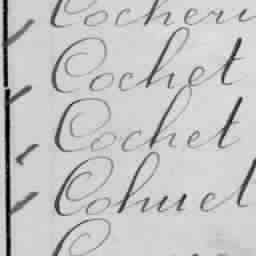 Cocheri
Cochet
Cochet
Cohuet